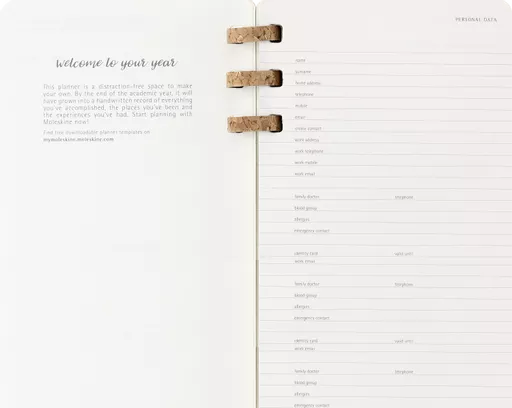 welcome to your year
This planner is a distraction-free space to make
your own. By the end of the academic year, it will
have grown into a handwritten record of everything
you've accomplished, the places you've been and
the experiences you've had. Start planning with
Moleskine now!
Find free downloadable planner templates on
mymoleskine.moleskine.com
PERSONAL DATA
name
surname
home address
telephone
mobile
email
work address
work telephone
work mobile
work email
family doctor telephone
blood group
allergies
emergency contact
identity card
family doctor telephone
blood group
allergies
emergency contact
identity card
family doctor telephone
blood group
allergies
emergency contact